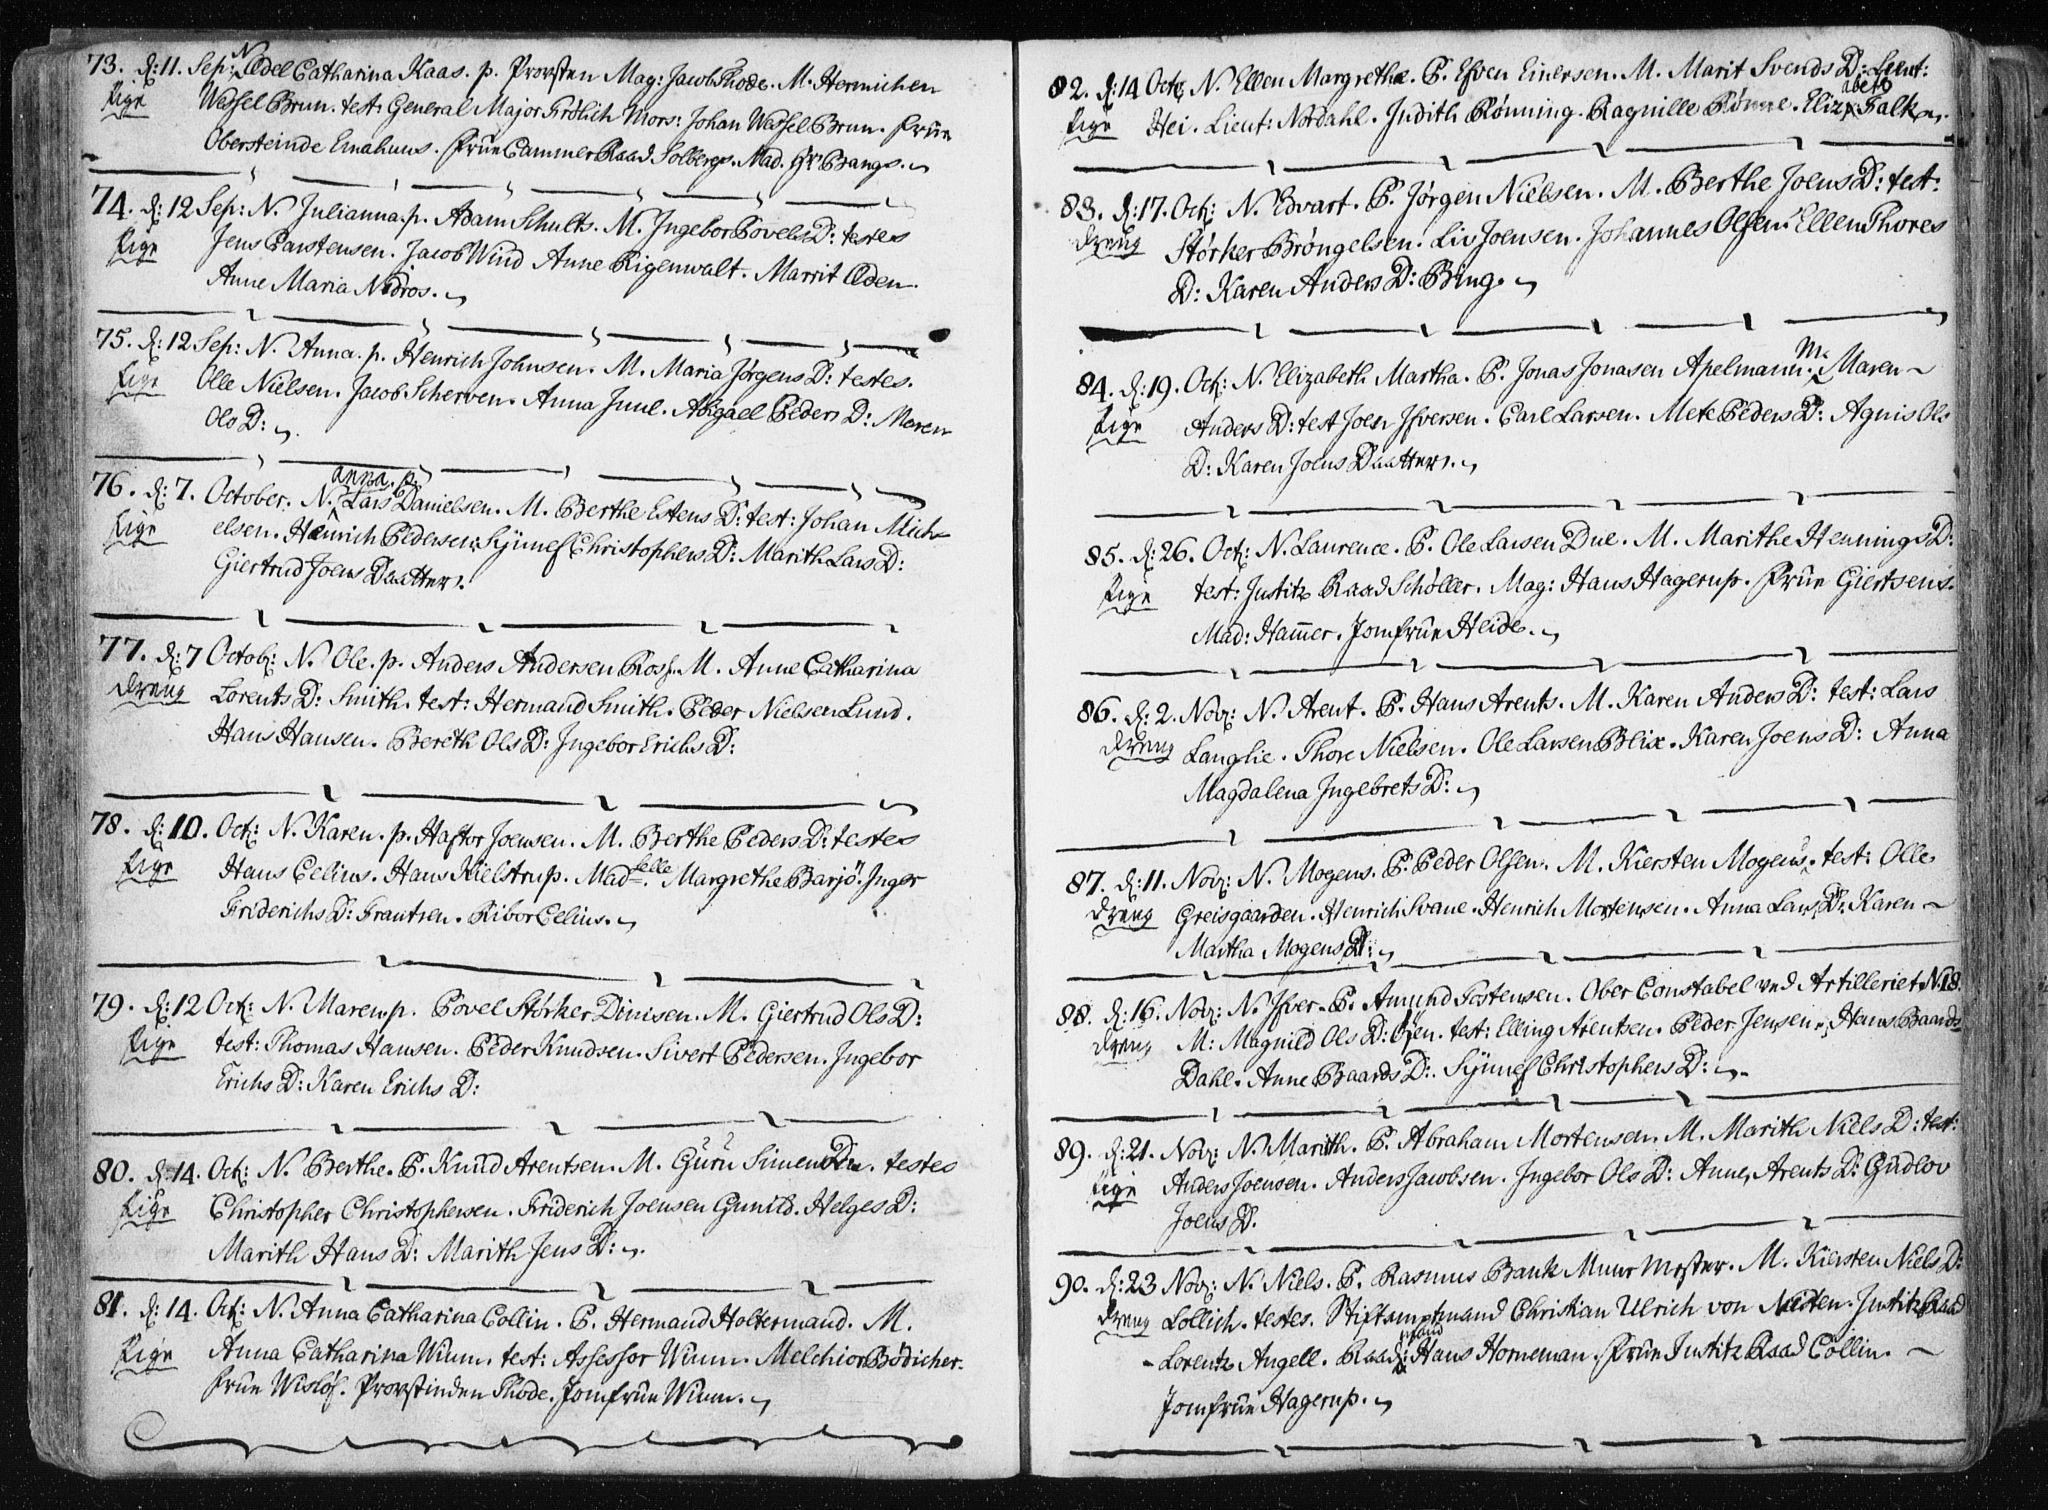 73. d: 11. Sep: N Ædel Catharina Kaas. p. Provsten Mag: Jacob Thode. M. Hermichen
Pige Wessel Brun. test: General Major Frölich Mors: Johan Wessel Brun. Frue
Obersteinde Emahuus. Frue Cammer Raad Solbergs. Mad. Hr Bangs.
74. d: 12 Sep: N. Julianna. p. Adam Schults. M. Ingebor Povels D: testes
Pige Jens Carstensen. Jacob Wind Anne Rigenwalt. Marrit Øden.
Anne Maria Nidros.
75. d: 12 Sep: N. Anna. p. Henrich Johnsen. M. Maria Jørgens D: testes.
Pige Olle Nielsen. Jacob Scherven. Anna Juul. Abigael Peders D: Maren
Ols D:
76. d: 7. October. N. anna. p. Lars Danielsen. M. Berthe Estens D: test: Johan Mich-
Pige elsen. Heinrich Pedersen. Sÿnnef Christophers D: Marith Lars D:
Giertrud Joens Daatter.
77. d: 7 Octob: N. Ole. p. Anders Andersen Ross. M. Anne Catharina
dreng Lorents D: Smith. test: Hermand Smith. Peder Nielsen Lund.
Hans Hansen. Bereth Ols D: Ingebor Erichs D:
78. d: 10. Oct: N. Karen. p. Haftor Joensen. M. Berthe Peders D: testes
Pige Hans Celius. Hans Kielstrup. Madselle. Margrethe Barjö. Inger
Friderichs D: Frantsen. Kibor Celius.
79. d: 12 Oct: N. Maren. p. Povel Størker Dinisen. M. Giertrud Ols D:
Pige test: Thomas Hansen. Peder Knudsen. Sivert Pedersen. Ingebor
Erichs D: Karen Erichs D:
80. d: 14. Oct: N. Berthe. P. Knud Arentsen. M. Guru Simens Dr. testes
Pige Christopher Christophersen. Friderich Joensen Gunild. Helges D:
Marith Hans D: Marith Jens D:
81. d: 14. Oct: N. Anna Catharina Collin. P. Hermand Holtermand. M.
Pige Anna Catharina Winn. test: Assessor Winn. Melchior Bödicher.
Frue Wislöf. Provstinden Thode. Jomfrue Winn.
82. d: 14 Oct: N. Ellen Margrethe. P. Esven Einersen. M. Marit Svends D: Lieut:
Pige Hei. Lieut: Nordahl. Judith Rønning. Ragnille Rønne. Elizabeth Falk.
83. d: 17. Oct: N. Edvart. P. Jørgen Nielsen. M. Berthe Joens D: test:
dreng Størker Brøngelsen. Liv Joensen. Johannes Olsen. Ellen Thores
D: Karen Anders D: Bing.
84. d: 19. Oct: N. Elizabeth Martha. P. Jonas Jonasen Apelmann. M: Maren
Pige Anders D: test Joen Ifversen. Carl Larsen. Mete Peders D: Agnis Ols
D: Karen Joens Daatter.
85. d: 26. Oct: N. Laurence. P. Ole Larsen Due. M. Marithe Hennings D:
Pige test: Justitz Raad Schöller. Mag: Hans Hagerup. Frue Giertsens.
Mad: Hammer. Jomfrue Heide.
86. d: 2. Nov: N. Arent. P. Hans Arents. M. Karen Anders D: test: Lars
dreng Langlie. Thore Nielsen. Ole Larsen Blix. Karen Joens D: Anna
Magdalena Ingebrets D:
87. d: 11. Nov: N. Mogens. P. Peder Olsen. M. Kiersten Mogens. test: Olle
dreng Greisgaarden. Henrich Svane. Henrich Mortensen. Anna Lars Dr. Karen
Martha Mogens D:
88. d: 16. Nov: N. Ifver. P. Amund Tostensen. Ober Constabel ved Artilleriet N. 18.
dreng M: Magnild Ols D: test: Elling Arentsen. Peder Jensen. Hans Baards
Dahl. Anne Baards D: Sÿnnef Christophers D:
89. d: 21. Nov: N. Marith. P. Abraham Mortensen. M. Marith Niels D: test:
Pige Anders Joensen. Anders Jacobsen. Ingebor Ols D: Anne Arents D: Gudlov
Joens D.
90. d: 23 Nov: N. Niels. P. Rasmus Bank Muur Mester. M. Kiersten Niels D:
dreng Lollich. testes. Stiftamptmand Christian Ulrich von Nissen. Justitz Raad
Lorentz Angell. Raadmand: Hans Horneman. Frue Justitz Raad Collin.
Jomfrue Hagerup.